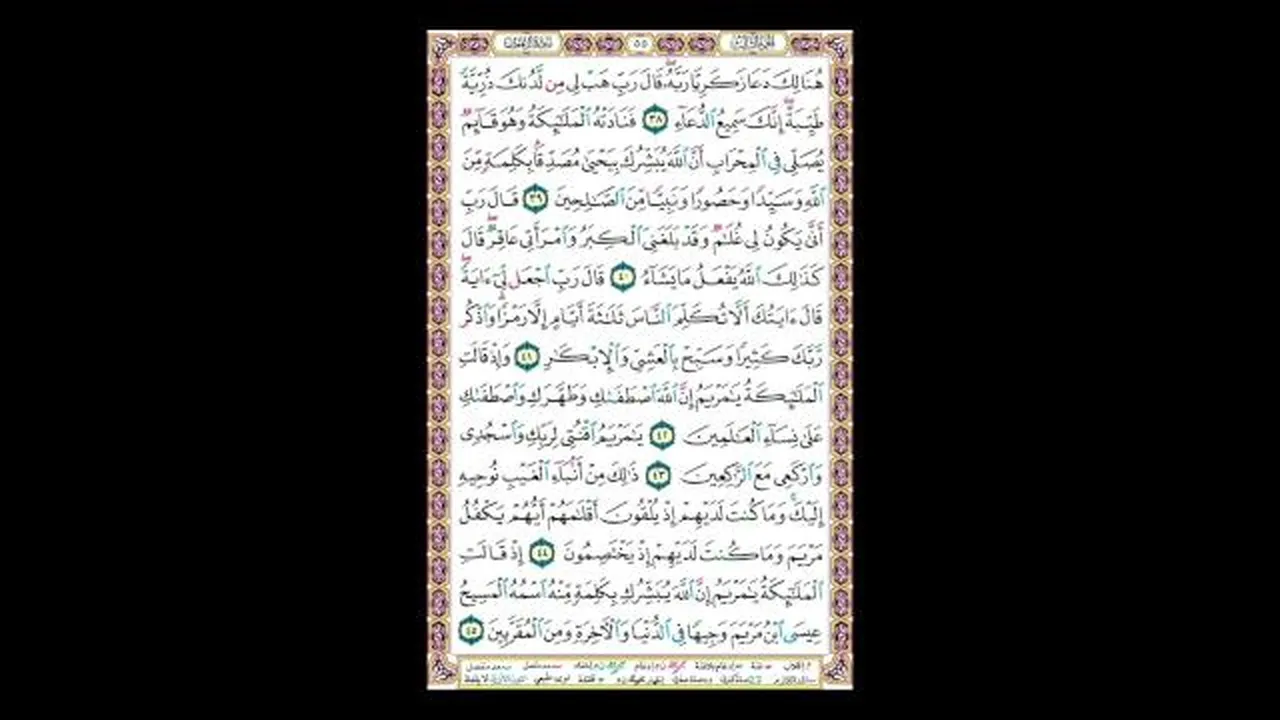 سورة آل عمران ٥٥ الجزء الثالث
هُنَالِكَ دَعَا زَكَرِيَّا رَبَّهُۥۖ قَالَ رَبِّ هَبْ لِى مِن لَّدُنكَ ذُرِّيَّةً
طَيِّبَةًۖ إِنَّكَ سَمِيعُ ٱلدُّعَآءِ ٣٨ فَنَادَتْهُ ٱلْمَلَٰٓئِكَةُ وَهُوَ قَآئِمٌ
يُصَلِّى فِى ٱلْمِحْرَابِ أَنَّ ٱللَّهَ يُبَشِّرُكَ بِيَحْيَىٰ مُصَدِّقًۢا بِكَلِمَةٍ مِّنَ
ٱللَّهِ وَسَيِّدًا وَحَصُورًا وَنَبِيًّا مِّنَ ٱلصَّٰلِحِينَ ٣٩ قَالَ رَبِّ
أَنَّىٰ يَكُونُ لِى غُلَٰمٌ وَقَدْ بَلَغَنِىَ ٱلْكِبَرُ وَٱمْرَأَتِى عَاقِرٌۖ قَالَ
كَذَٰلِكَ ٱللَّهُ يَفْعَلُ مَا يَشَآءُ ٤٠ قَالَ رَبِّ ٱجْعَل لِّىٓ ءَايَةًۖ
قَالَ ءَايَتُكَ أَلَّا تُكَلِّمَ ٱلنَّاسَ ثَلَٰثَةَ أَيَّامٍ إِلَّا رَمْزًاۗ وَٱذْكُر
رَّبَّكَ كَثِيرًا وَسَبِّحْ بِٱلْعَشِىِّ وَٱلْإِبْكَٰرِ ٤١ وَإِذْ قَالَتِ
ٱلْمَلَٰٓئِكَةُ يَٰمَرْيَمُ إِنَّ ٱللَّهَ ٱصْطَفَىٰكِ وَطَهَّرَكِ وَٱصْطَفَىٰكِ
عَلَىٰ نِسَآءِ ٱلْعَٰلَمِينَ ٤٢ يَٰمَرْيَمُ ٱقْنُتِى لِرَبِّكِ وَٱسْجُدِى
وَٱرْكَعِى مَعَ ٱلرَّٰكِعِينَ ٤٣ ذَٰلِكَ مِنْ أَنۢبَآءِ ٱلْغَيْبِ نُوحِيهِ
إِلَيْكَۚ وَمَا كُنتَ لَدَيْهِمْ إِذْ يُلْقُونَ أَقْلَٰمَهُمْ أَيُّهُمْ يَكْفُلُ
مَرْيَمَ وَمَا كُنتَ لَدَيْهِمْ إِذْ يَخْتَصِمُونَ ٤٤ إِذْ قَالَتِ
ٱلْمَلَٰٓئِكَةُ يَٰمَرْيَمُ إِنَّ ٱللَّهَ يُبَشِّرُكِ بِكَلِمَةٍ مِّنْهُ ٱسْمُهُ ٱلْمَسِيحُ
عِيسَى ٱبْنُ مَرْيَمَ وَجِيهًا فِى ٱلدُّنْيَا وَٱلْءَاخِرَةِ وَمِنَ ٱلْمُقَرَّبِينَ ٤٥